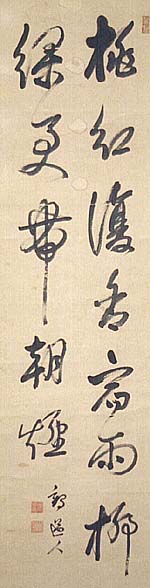 桃紅復含宿雨柳
綠更帶朝煙
道人